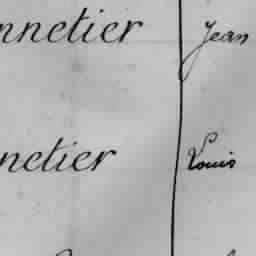 nnetier Jean
netier Louis